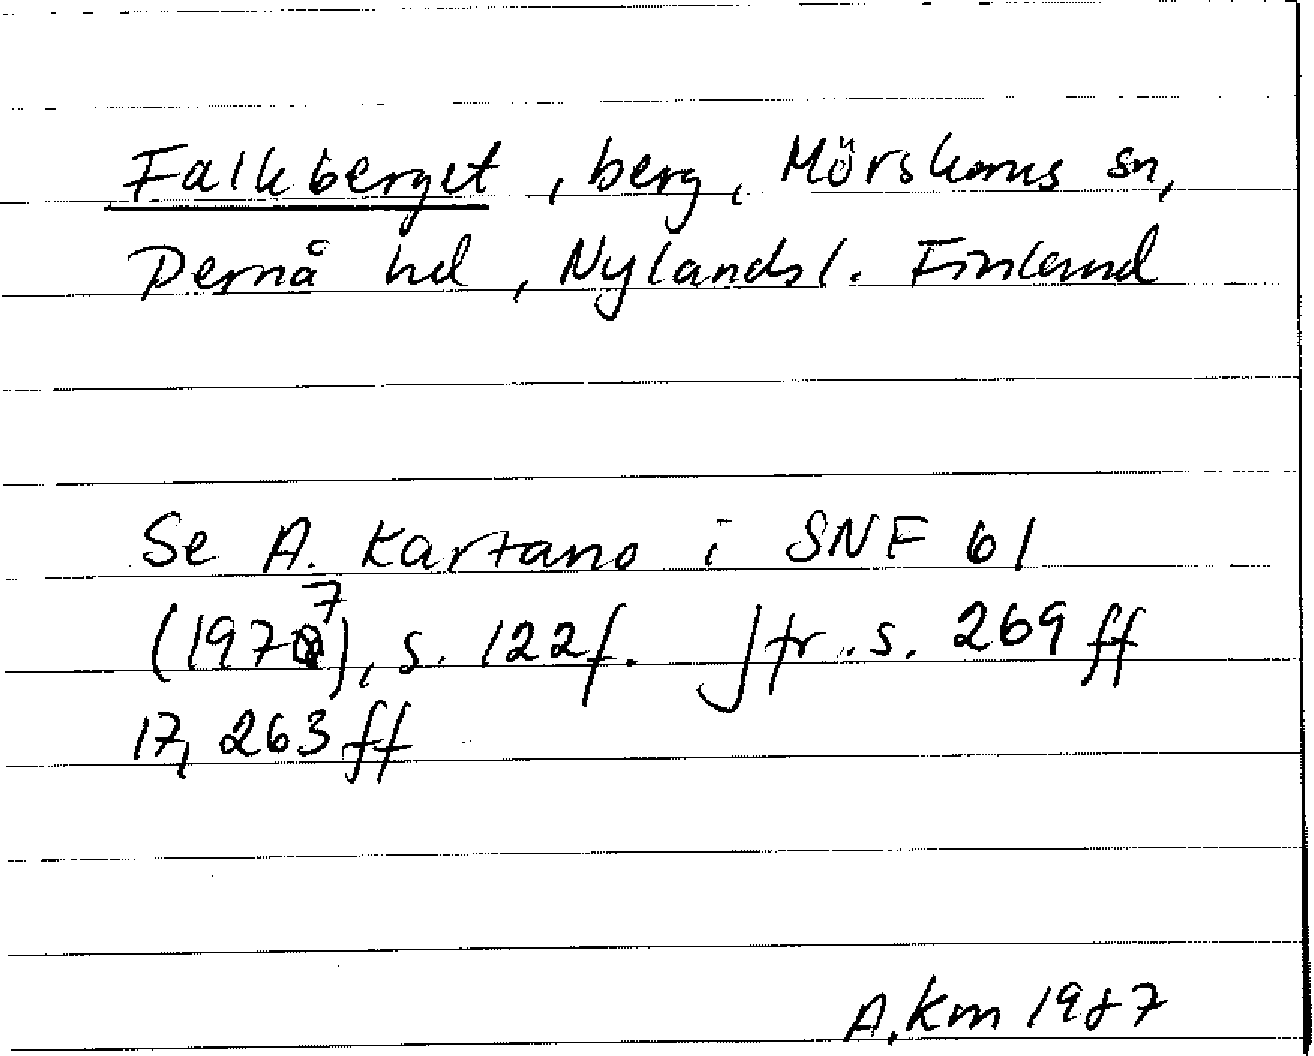 Falkberget, berg, Mörskoms sn,
Pernå hd, Nylands l. Finland
Se A. Kartano i SNF 61
(1977), s. 122f. Jfr. s. 269 ff
17, 263 ff
A. Km 1987